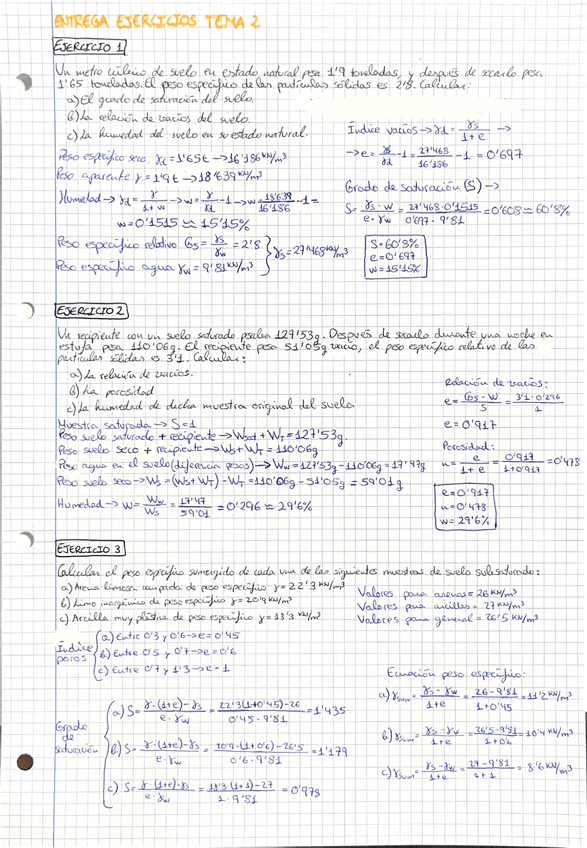 ENTREGA EJERCICIOS TEMA 2
EJERCICIO 1
Un metro cúbico de suelo en estado natural pesa 1'9 toneladas, y después de secarlo pesa
1'65 toneladas. El peso específico de las partículas sólidas es 2'8. Calcular:
a) El grado de saturación del suelo.
b) La relación de vacíos del suelo.
c) La humedad del suelo en su estado natural.
Peso específico seco, γd = 1'65 t → 16'186 kN/m³
Peso aparente γ = 1'9 t → 18'639 kN/m³
Humedad → γd = γ/(1+w) → w = γ/γd - 1 → w = 18'639/16'186 - 1 =
w = 0'1515 ≈ 15'15%
Peso específico relativo Gs = γs/γw = 2'8
Peso específico agua γw = 9'81 kN/m³
} γs = 27'468 kN/m³
Índice vacíos → γd = γs/(1+e) →
→ e = γs/γd - 1 = 27'468/16'186 - 1 = 0'697
Grado de saturación (S) →
S = γs · w/(e · γw) = 27'468 · 0'1515/(0'697 · 9'81) = 0'608 ≈ 60'8%
S = 60'8%
e = 0'697
w = 15'15%
EJERCICIO 2
Un recipiente con un suelo saturado pesaba 127'53g. Después de secarlo durante una noche en
estufa pesa 110'06g. El recipiente pesa 51'05g vacío, el peso específico relativo de las
partículas sólidas es 3'1. Calcular:
a) La relación de vacíos.
b) La porosidad
c) La humedad de dicha muestra original del suelo
Muestra saturada → S = 1
Peso suelo saturado + recipiente → Wsat + WT = 127'53g.
Peso suelo seco + recipiente → Ws + WT = 110'06g
Peso agua en el suelo (diferencia pesos) → Ww = 127'53g - 110'06g = 17'47g
Peso suelo seco → Ws = (Ws + WT) - WT = 110'06g - 51'05g = 59'01g
Humedad → W = Ww/Ws = 17'47/59'01 = 0'296 ≈ 29'6%
Relación de vacíos:
e = Gs · W/S = 3'1 · 0'296/1
e = 0'917
Porosidad:
n = e/(1+e) = 0'917/(1+0'917) = 0'478
e = 0'917
n = 0'478
w = 29'6%
EJERCICIO 3
Calcular el peso específico sumergido de cada una de las siguientes muestras de suelo subsaturado:
a) Arena limosa compacta de peso específico γ = 22'3 kN/m³
b) Limo inorgánico de peso específico γ = 20'9 kN/m³
c) Arcilla muy plástica de peso específico γ = 18'3 kN/m³
Valores para arenas = 26 kN/m³
Valores para arcillas = 27 kN/m³
Valores para general = 26'5 kN/m³
Índice poros
a) Entre 0'3 y 0'6 → e = 0'45
b) Entre 0'5 y 0'7 → e = 0'6
c) Entre 0'7 y 1'3 → e = 1
Grado de saturación
a) S = (γ · (1+e) - γs)/(e · γw) = (22'3(1+0'45) - 26)/(0'45 · 9'81) = 1'435
b) S = (γ · (1+e) - γs)/(e · γw) = (20'9 · (1+0'6) - 26'5)/(0'6 · 9'81) = 1'179
c) S = (γ · (1+e) - γs)/(e · γw) = (18'3(1+1) - 27)/(1 · 9'81) = 0'978
Ecuación peso específico:
a) γsum = (γs - γw)/(1+e) = (26 - 9'81)/(1+0'45) = 11'2 kN/m³
b) γsum = (γs - γw)/(1+e) = (26'5 - 9'81)/(1+0'6) = 10'4 kN/m³
c) γsum = (γs - γw)/(1+e) = (27 - 9'81)/(1+1) = 8'6 kN/m³